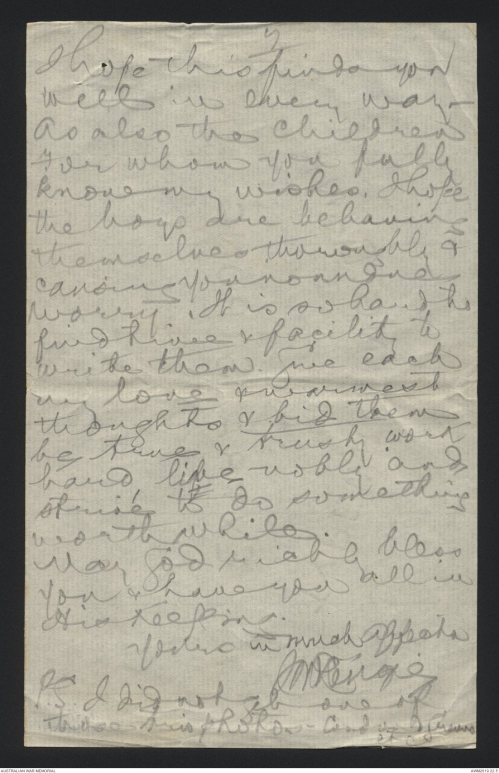 2
I hope this finds you
well in every way -
As also the children
For whom you fully
know my wishes. I hope
the boys are behaving
themselves thoroughly &
causing you no undue
worry. It is so hard to
find time & facility to
write them. Give each
my love & warmest
thoughts & bid them
be true & trusty work
hard live nobly and
strive to do something
worth while.
May God richly bless
you & have you all in
His keeping.
Yours in much affectn
P.S. I did not get one of
those
AUSTRALIAN WAR MEMORIAL